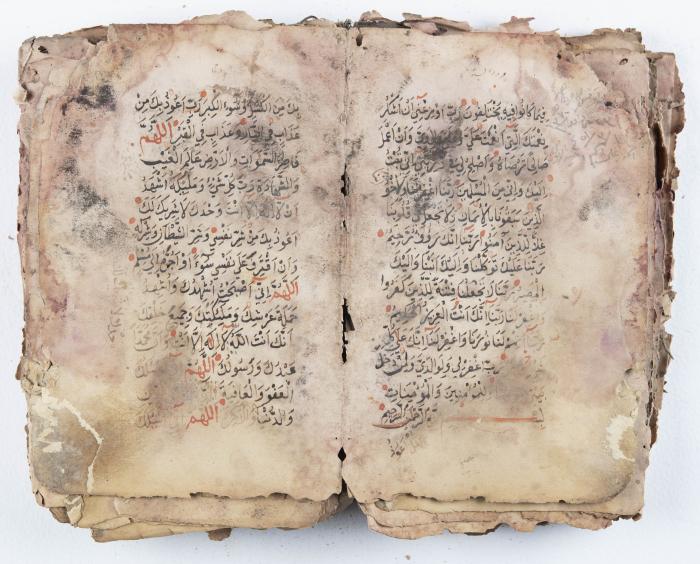 فيما كانوا فيه يختلفون رب اوزعني أن أشكر
نعمتك التي أنعمت علي والدي وان اعمل
صالحا ترضاه واصلح لي في تبت
اليك واني من المسلمين ربنا اغفر لنا ولاخواننا
الذين سبقونا بالايمان ولا تجعل في قلوبنا
غلا للذين آمنوا ربنا انك رؤوف رحيم
ربنا عليك توكلنا واليك انبنا واليك
المصير ربنا لا تجعلنا فتنة للذين كفروا
واغفر لنا ربنا انك انت العزيز الحكيم
لنا نورنا واغفر لنا انك على كل
رب اغفر لي ولوالدي ولمن دخل
وللمؤمنين والمؤمنات
الرحمن الرحيم
بك من الكسل وسوء الكبر رب اعوذ بك من
عذاب في النار وعذاب في القبر اللهم
فاطر السموات والارض عالم الغيب
والشهادة رب كل شيء ومليكه اشهد
ان لا اله الا انت وحدك لا شريك لك
اعوذ بك من شر نفسي وشر الشيطان وشركه
وان اقترف على نفسي سوءا او اجره الى مسلم
اللهم اني اصبحت اشهدك واشهد
حملة عرشك وملئكتك وجميع خلقك
انك انت الله لا اله الا انت وان محمدا
عبدك ورسولك اللهم
العفو والعافية
والدنيا اللهم